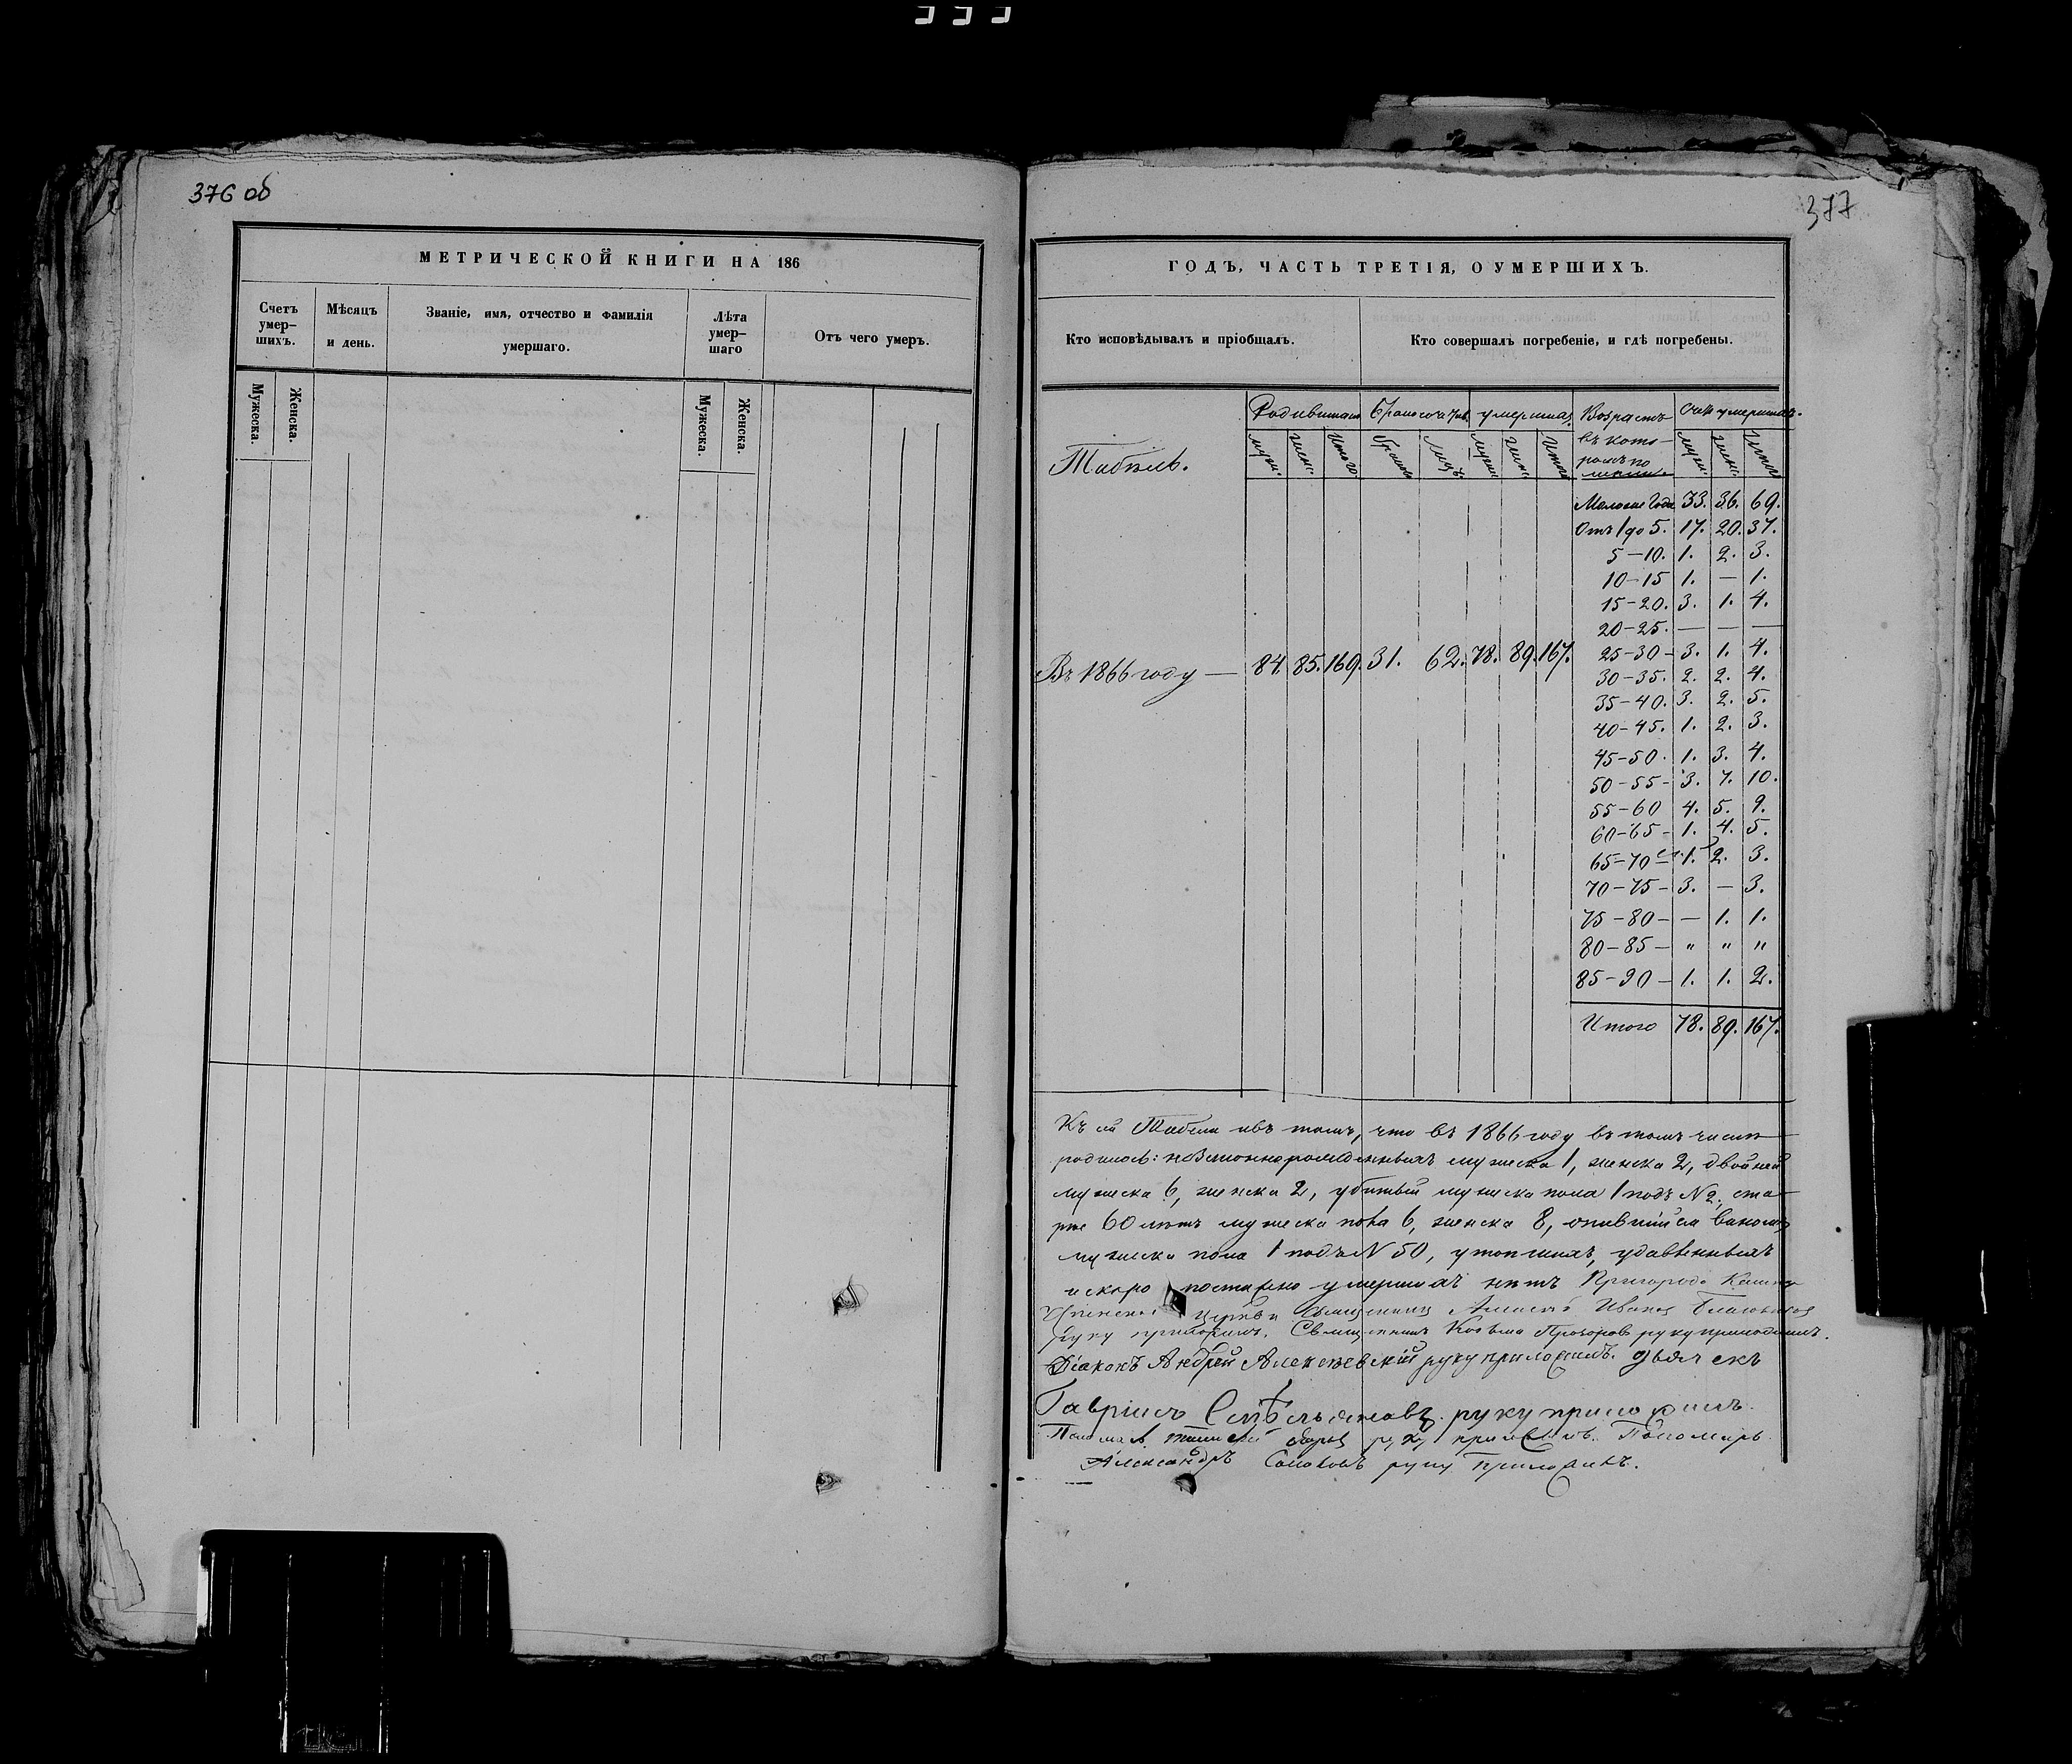 376 об
МЕТРИЧЕСКОЙ КНИГИ НА 186
Счетъ умер-шихъ.
Мѣсяцъ и день.
Званіе, имя, отчество и фамилія умершаго.
Лѣта умер-шаго
Отъ чего умеръ.
Мужеска.
Женска.
Мужеска.
Женска.
377
ГОДЪ, ЧАСТЬ ТРЕТІЯ, О УМЕРШИХЪ.
Кто исповѣдывалъ и пріобщалъ.
Кто совершалъ погребеніе, и гдѣ погребены.
Табель.
Родившихся
умершихъ
Возрастъ въ кото-ромъ по
Счетъ умершихъ.
муж. женс. Итого браковъ лицъ муж. женс. Итого
муж. женс. Итого
33. 36. 69.
Отъ 1 до 5. 17. 20. 37.
5-10. 1. 2. 3.
10-15 1. — 1.
15-20. 3. 1. 4.
20-25. — — —
Въ 1866 году — 84. 85. 169. 31. 62. 78. 89. 167.
25-30- 3. 1. 4.
30-35. 2. 2. 4.
35-40. 3. 2. 5.
40-45. 1. 2. 3.
45-50. 1. 3. 4.
50-55- 3. 7. 10.
55-60 4. 5. 9.
60-65- 1. 4. 5.
65-70 1. 2. 3.
70-75- 3. — 3.
75-80- — 1. 1.
80-85- " " "
85-90- 1. 1. 2.
Итого 78. 89. 167.
Къ сей Табели въ томъ, что въ 1866 году въ томъ числѣ
родилось: незаконнорожденныхъ мужеска 1, женска 2, двойней
мужеска 6, женска 2, убитый мужеска пола 1 подъ № 2, ста-
рше 60 лѣтъ мужеска пола 6, женска 8, опившійся виномъ
мужеска пола 1 подъ № 50, утопшихъ, удавленныхъ
и скоропостижно умершихъ нѣтъ Пригорода
Церкви Священникъ Алексѣй Ивановъ
руку приложилъ. Священникъ Козьма Прозоровъ руку приложилъ.
Діаконъ Андрей Алексѣевскій руку приложилъ. Дьячекъ
Гавріилъ руку приложилъ.
руку приложилъ. Пономарь
Александръ руку приложилъ.